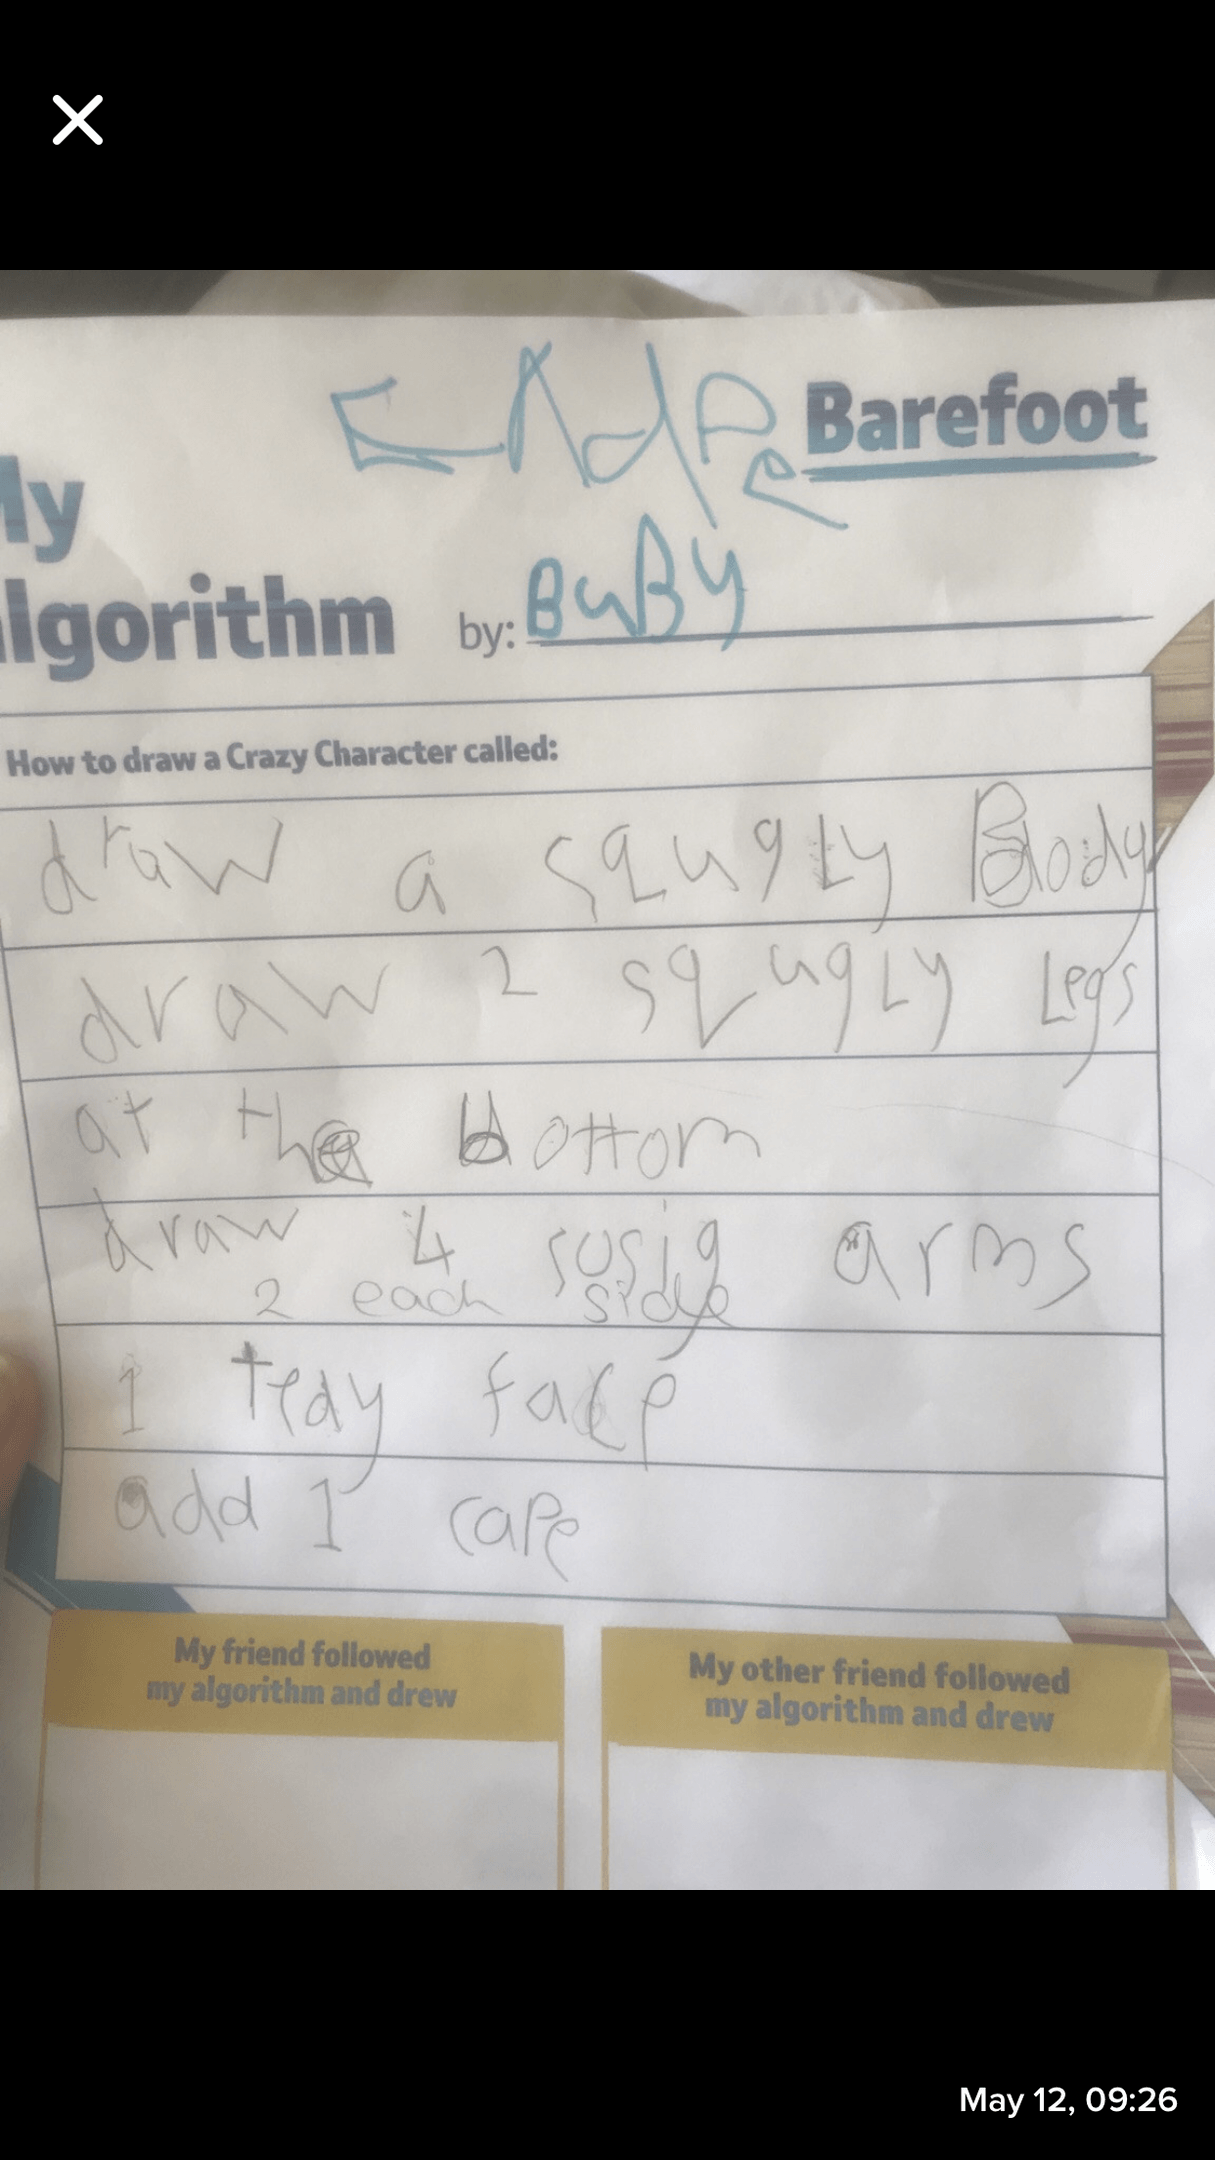 Barefoot
My
algorithm by: BuBy
How to draw a Crazy Character called:
draw a squgly Body
draw 2 squgly Legs
at the bottom
draw 4 susig arms
2 each side
1 tedy face
add 1 cape
My friend followed
my algorithm and drew
My other friend followed
my algorithm and drew
May 12, 09:26